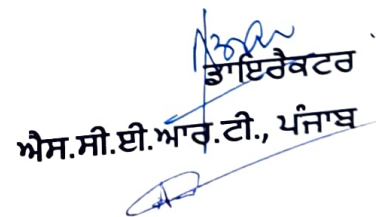 ਡਾਇਰੈਕਟਰ
ਐਸ.ਸੀ.ਈ.ਆਰ.ਟੀ., ਪੰਜਾਬ